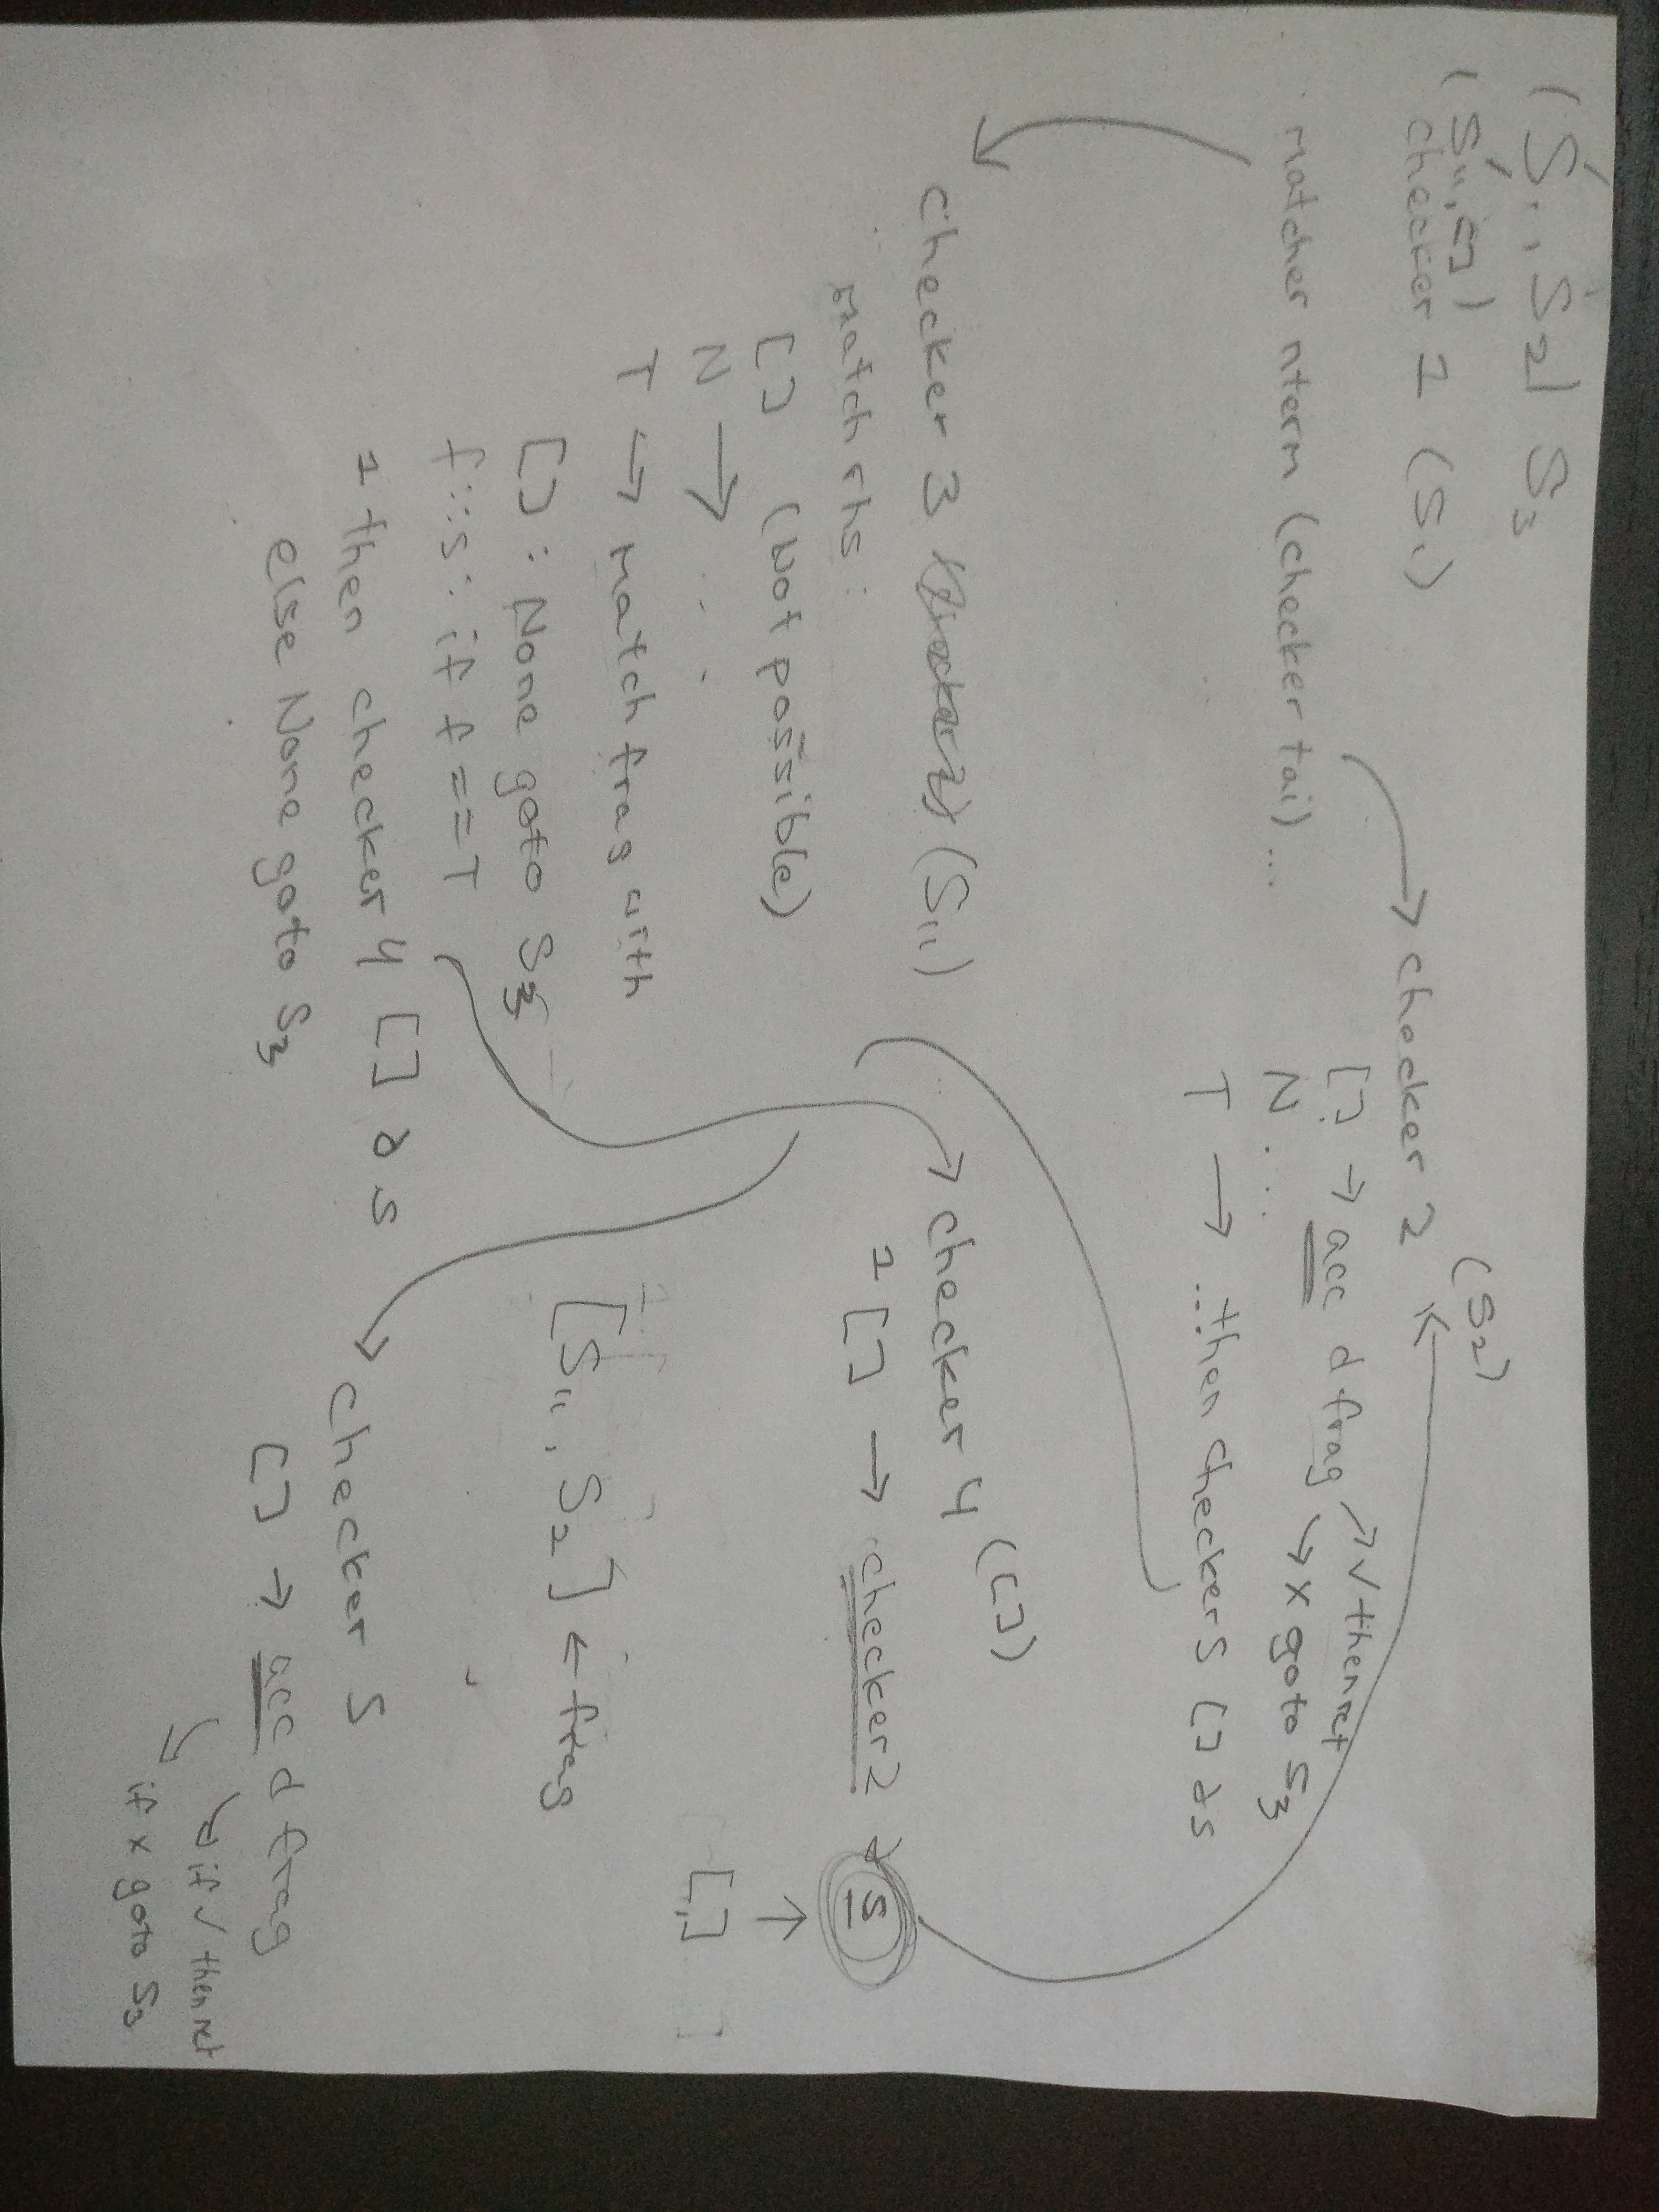 (S₁, S₂) S₃
(S₁₁, [])
checker 1 (S₁)
matcher nterm (checker tail) ...
checker 2 (S₂)
[] → acc d frag → ✓ then ret
→ x goto S₃
N ...
T → ... then checker 5 [] d s
checker 3 (S₁₁)
match rhs:
[] (not possible)
N → ...
T → match frag with
[] : None goto S₃
f::s: if f == T
1 then checker 4 [] d s
else None goto S₃
checker 4 ([])
1 [] → checker 2 d s
[]
[S₁₁, S₂] ← frag
checker 5
[] → acc d frag
→ if ✓ then ret
→ if x goto S₃